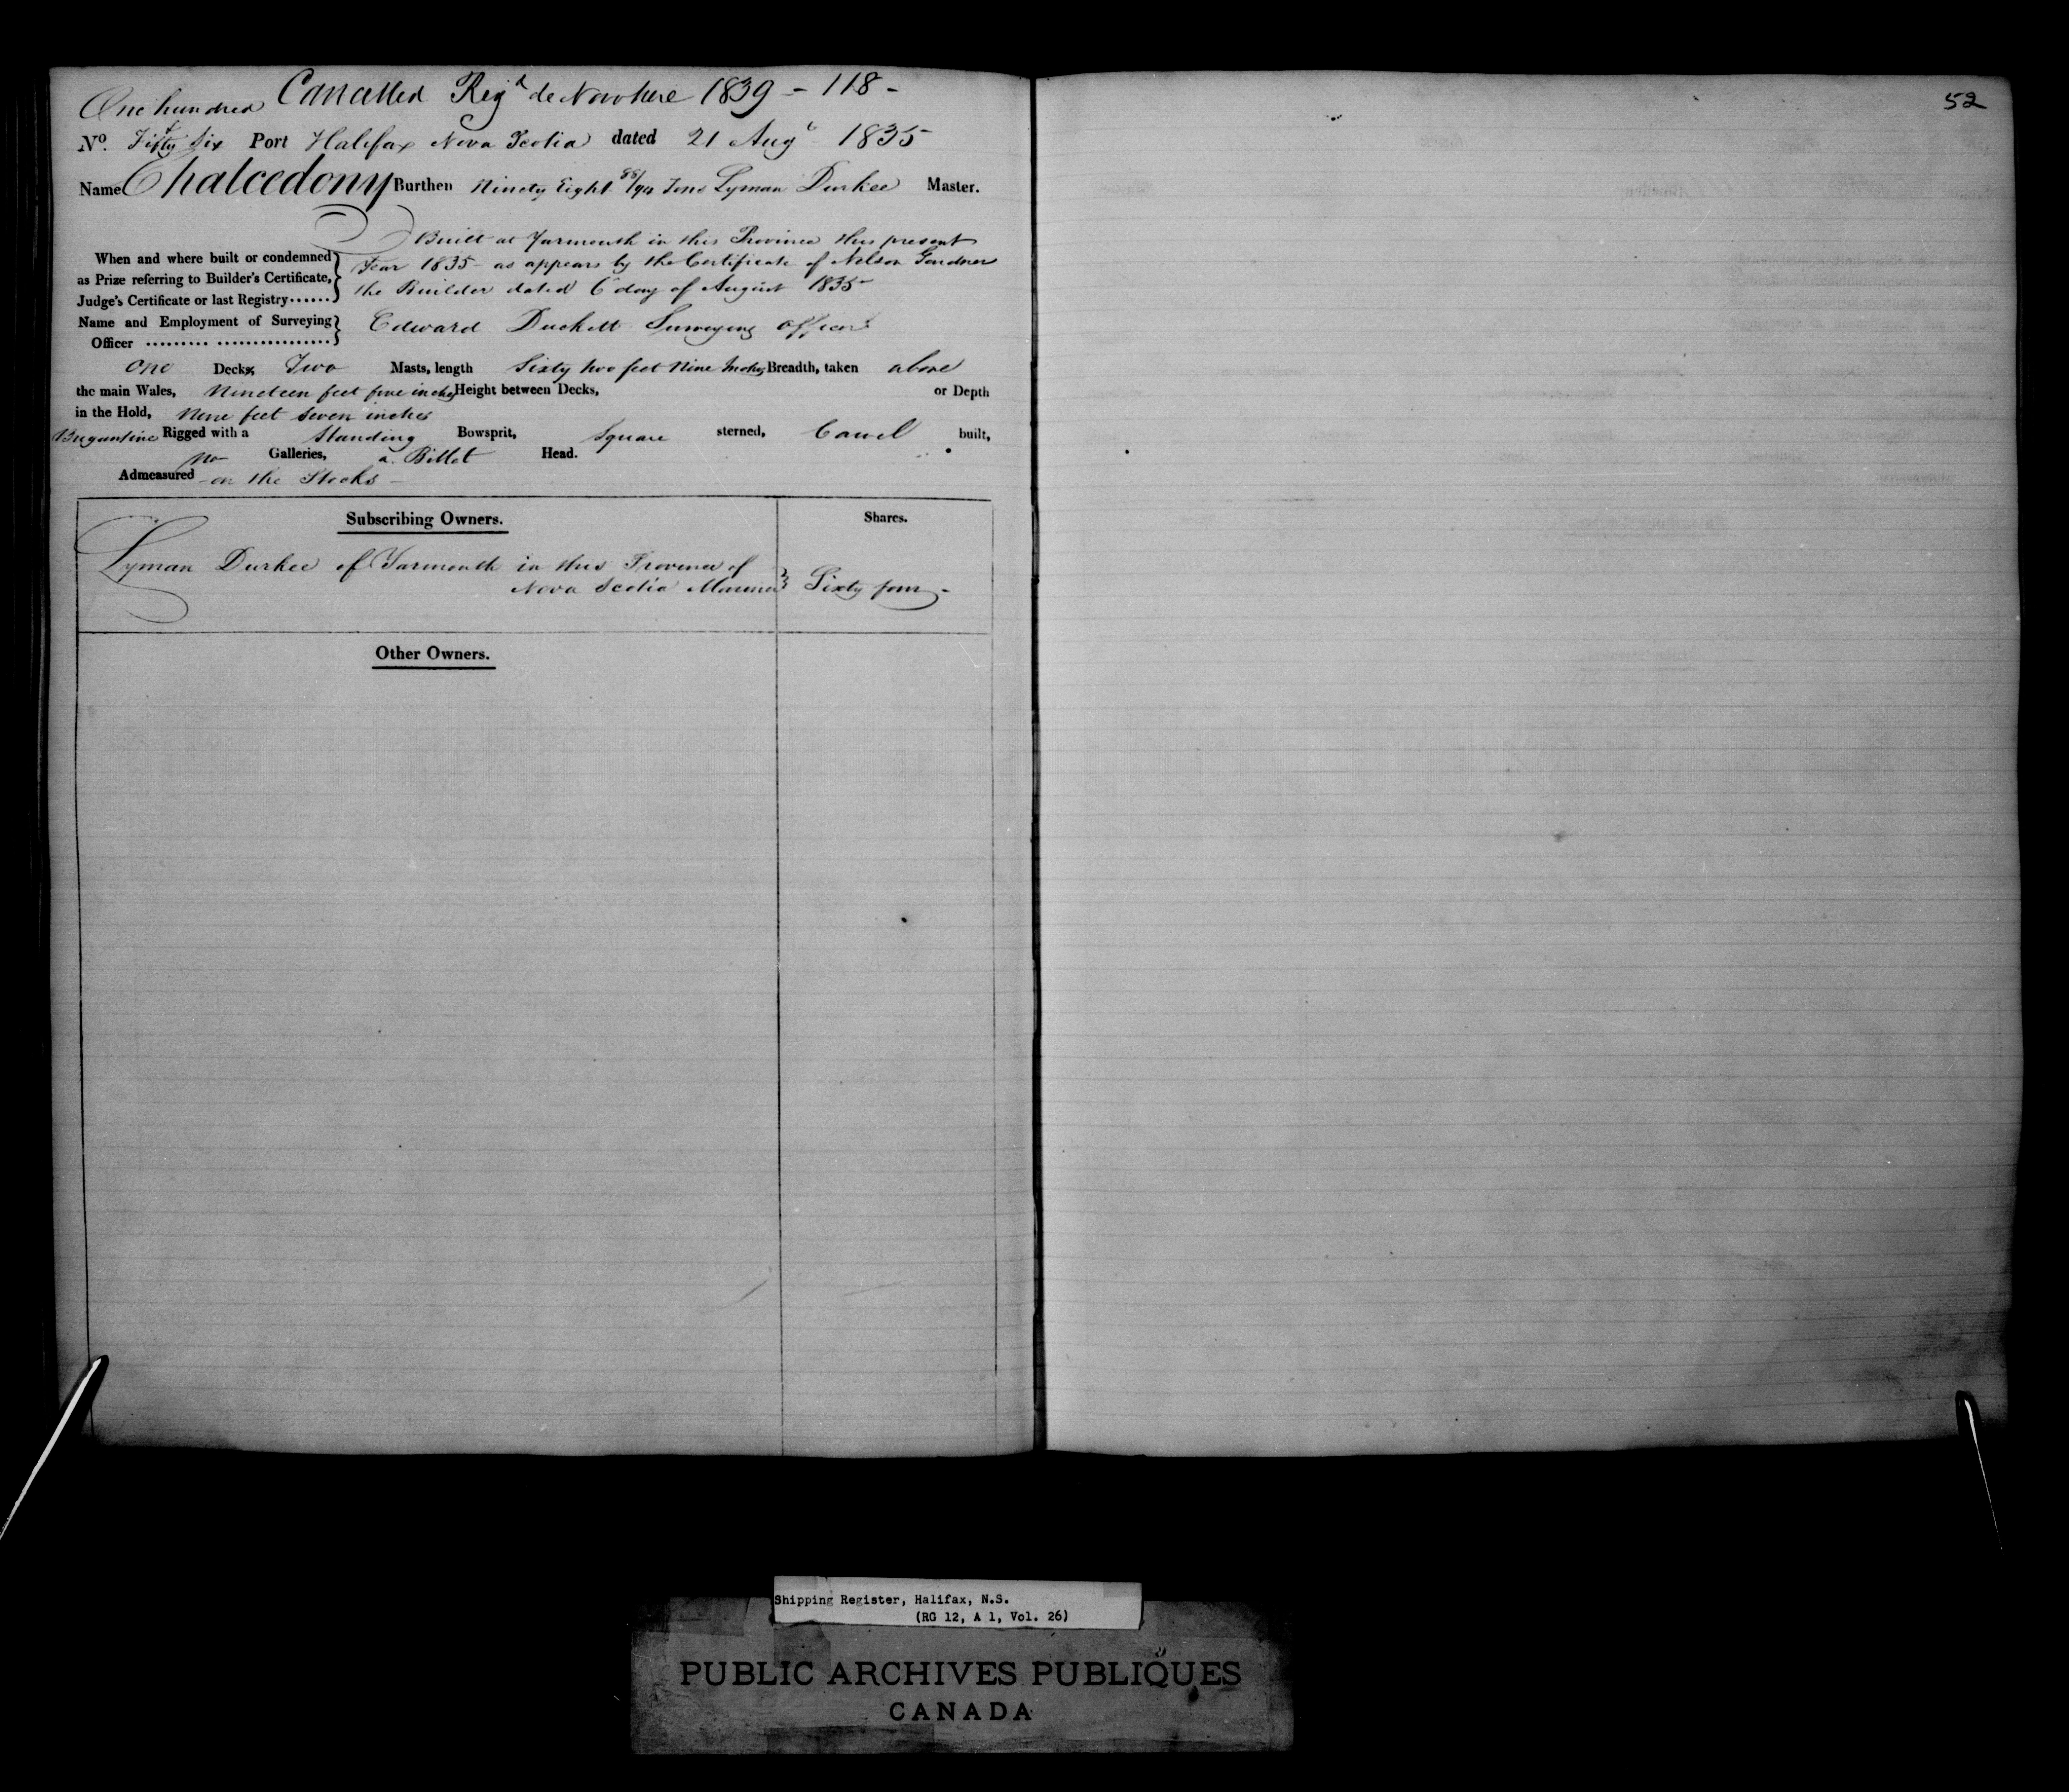 Cancelled Regd de Novo here 1839 - 118 -
One hundred
No. Fifty Six Port Halifax Nova Scotia dated 21 Augt 1835
Name Chalcedony Burthen Ninety Eight 88/94 Tons Lyman Durkee Master.
Built at Yarmouth in this Province this present
When and where built or condemned } Year 1835 - as appears by the Certificate of Nelson Gardner
as Prize referring to Builder's Certificate, } the Builder dated 6 day of August 1835 -
Judge's Certificate or last Registry......
Name and Employment of Surveying } Edward Duckett Surveying Officer
Officer ......... ................
One Decks, Two Masts, length Sixty two feet Nine Inches Breadth, taken above
the main Wales, Nineteen feet five inches Height between Decks, or Depth
in the Hold, Nine feet Seven inches
Brigantine Rigged with a Standing Bowsprit, Square sterned, Carvel built,
no Galleries, a Billet Head.
Admeasured - on the Stocks -
Subscribing Owners. Shares.
Lyman Durkee of Yarmouth in this Province of
Nova Scotia Mariner } Sixty four -
Other Owners.
52
Shipping Register, Halifax, N.S.
(RG 12, A 1, Vol. 26)
PUBLIC ARCHIVES PUBLIQUES
CANADA